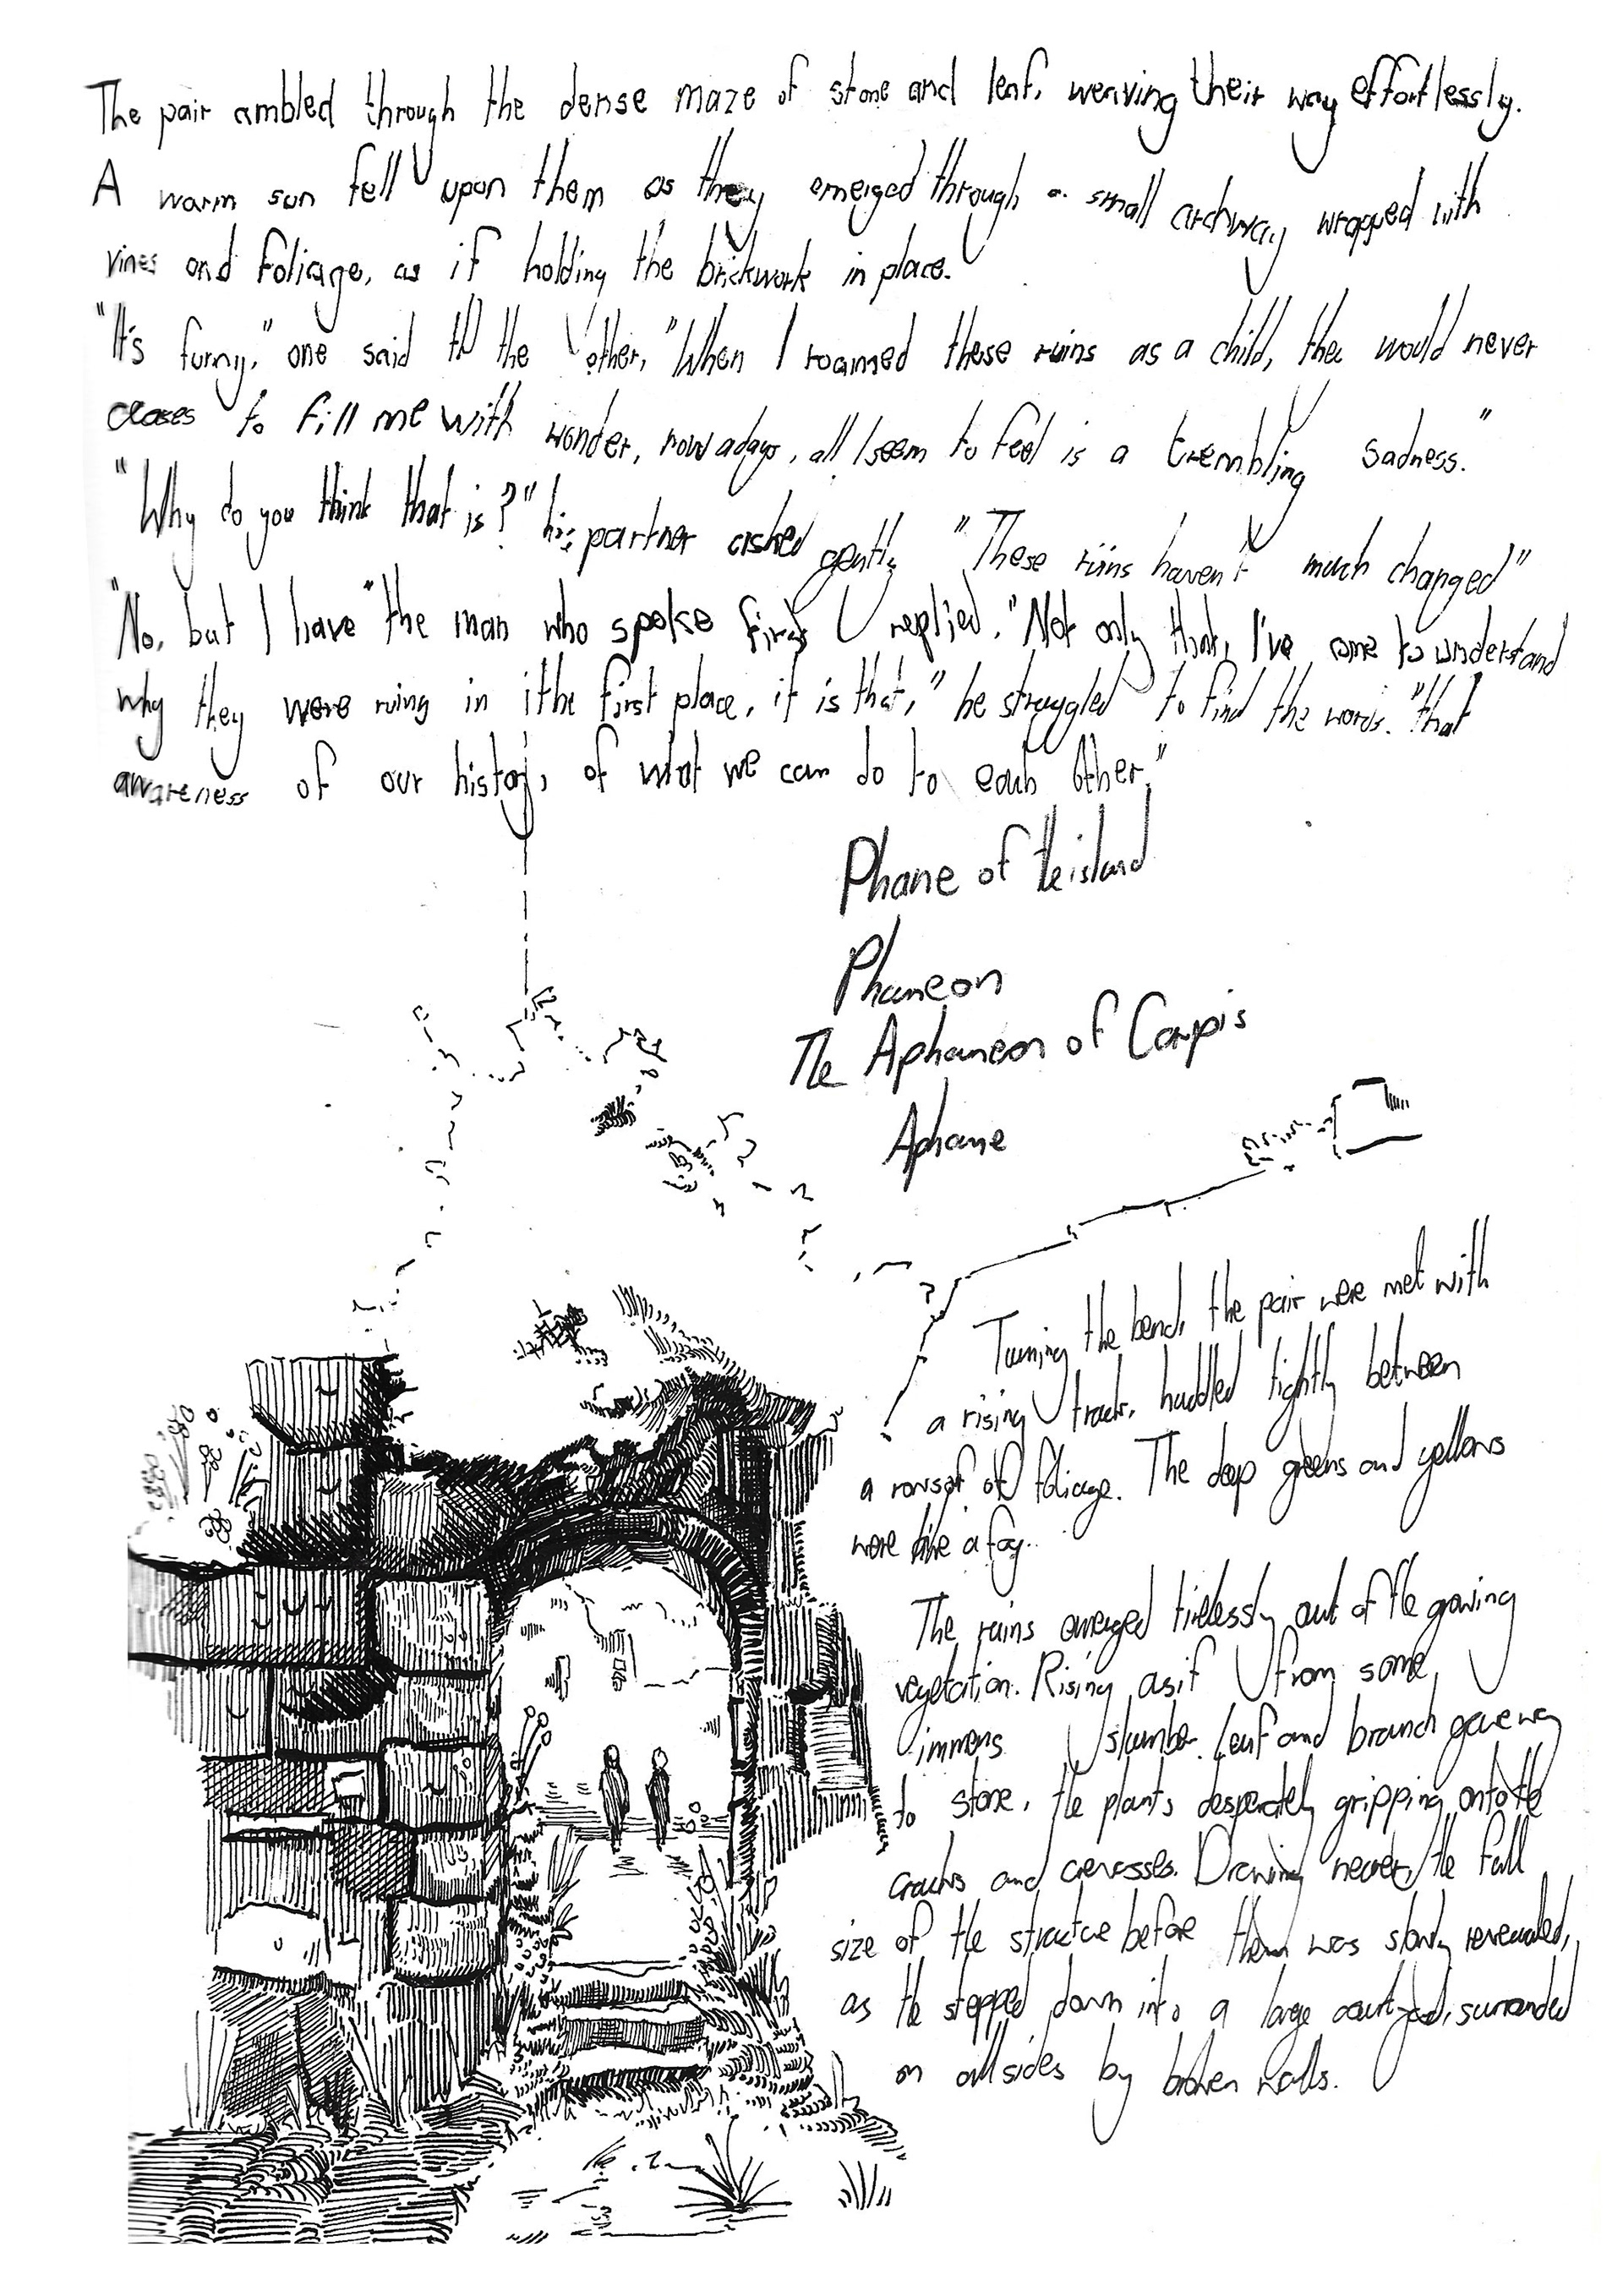 The pair ambled through the dense maze of stone and leaf, weaving their way effortlessly.
A warm sun fell upon them as they emerged through a small archway wrapped with
vines and foliage, as if holding the brickwork in place.
"It's funny," one said to the other, "When I roamed these ruins as a child, they would never
ceases to fill me with wonder, nowadays, all I seem to feel is a trembling sadness."
"Why do you think that is?" his partner asked gently "These ruins haven't much changed"
"No, but I have" the man who spoke first replied. "Not only that, I've come to understand
why they were ruing in the first place, it is that," he struggled to find the words. "that
awareness of our history, of what we can do to each other."
Phane of the island
Phaneon
The Aphaneon of Carpis
Aphane
Turning the bend, the pair were met with
a rising track, huddled tightly between
a rows of foliage. The deep greens and yellows
were like a fog.
The ruins emerged tirelessly out of the growing
vegetation. Rising as if from some
immens slumber. Leaf and branch gave way
to stone, the plants desperately gripping onto the
cracks and crevasses. Drawing nearer, the full
size of the structure before them was slowly revealed,
as the stepped down into a large courtyard, surrounded
on all sides by broken walls.